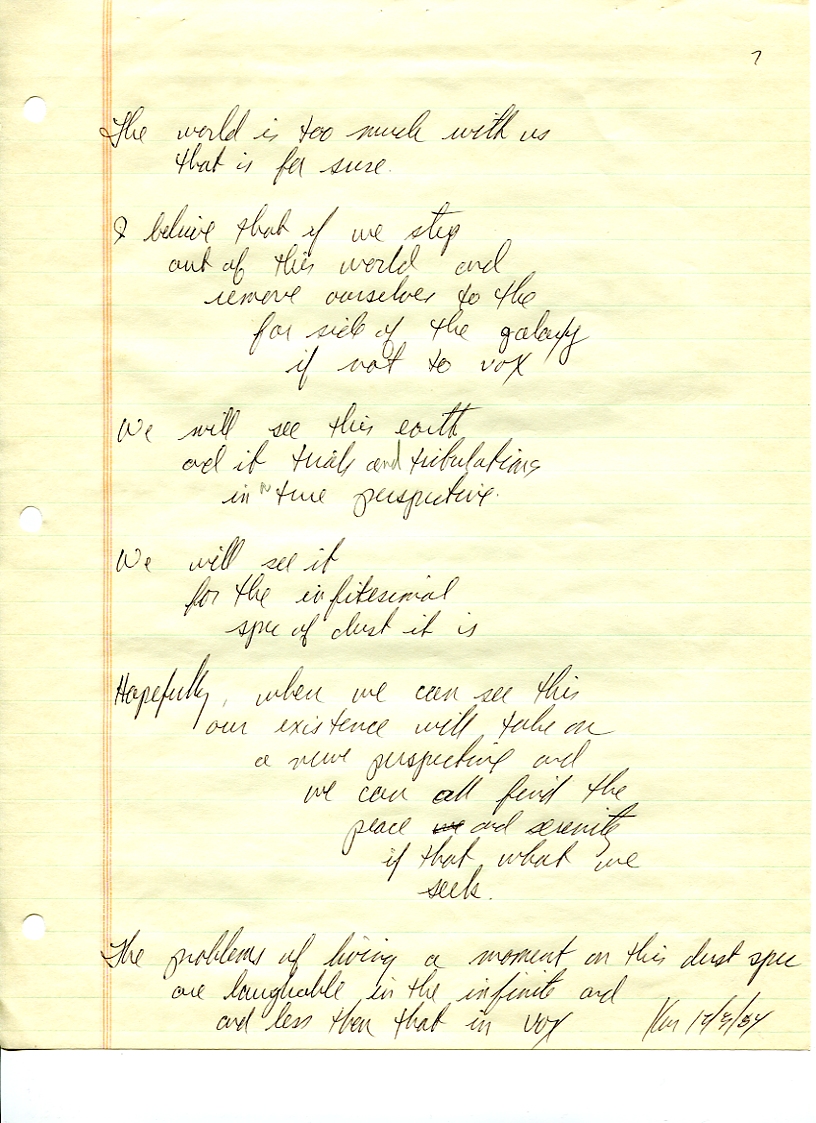 7
The world is too much with us
that is for sure.
I believe that if we step
out of this world and
remove ourselves to the
far side of the galaxy
if not to vox
We will see this earth
and it trials and tribulations
in true perspective.
We will see it
for the infitesimal
spec of dust it is
Hopefully, when we can see this
our existence will take on
a new perspective and
we can all find the
peace and serenity
if that what we
seek.
The problems of living a moment on this dust spec
are laughable in the infinite and
and less then that in vox